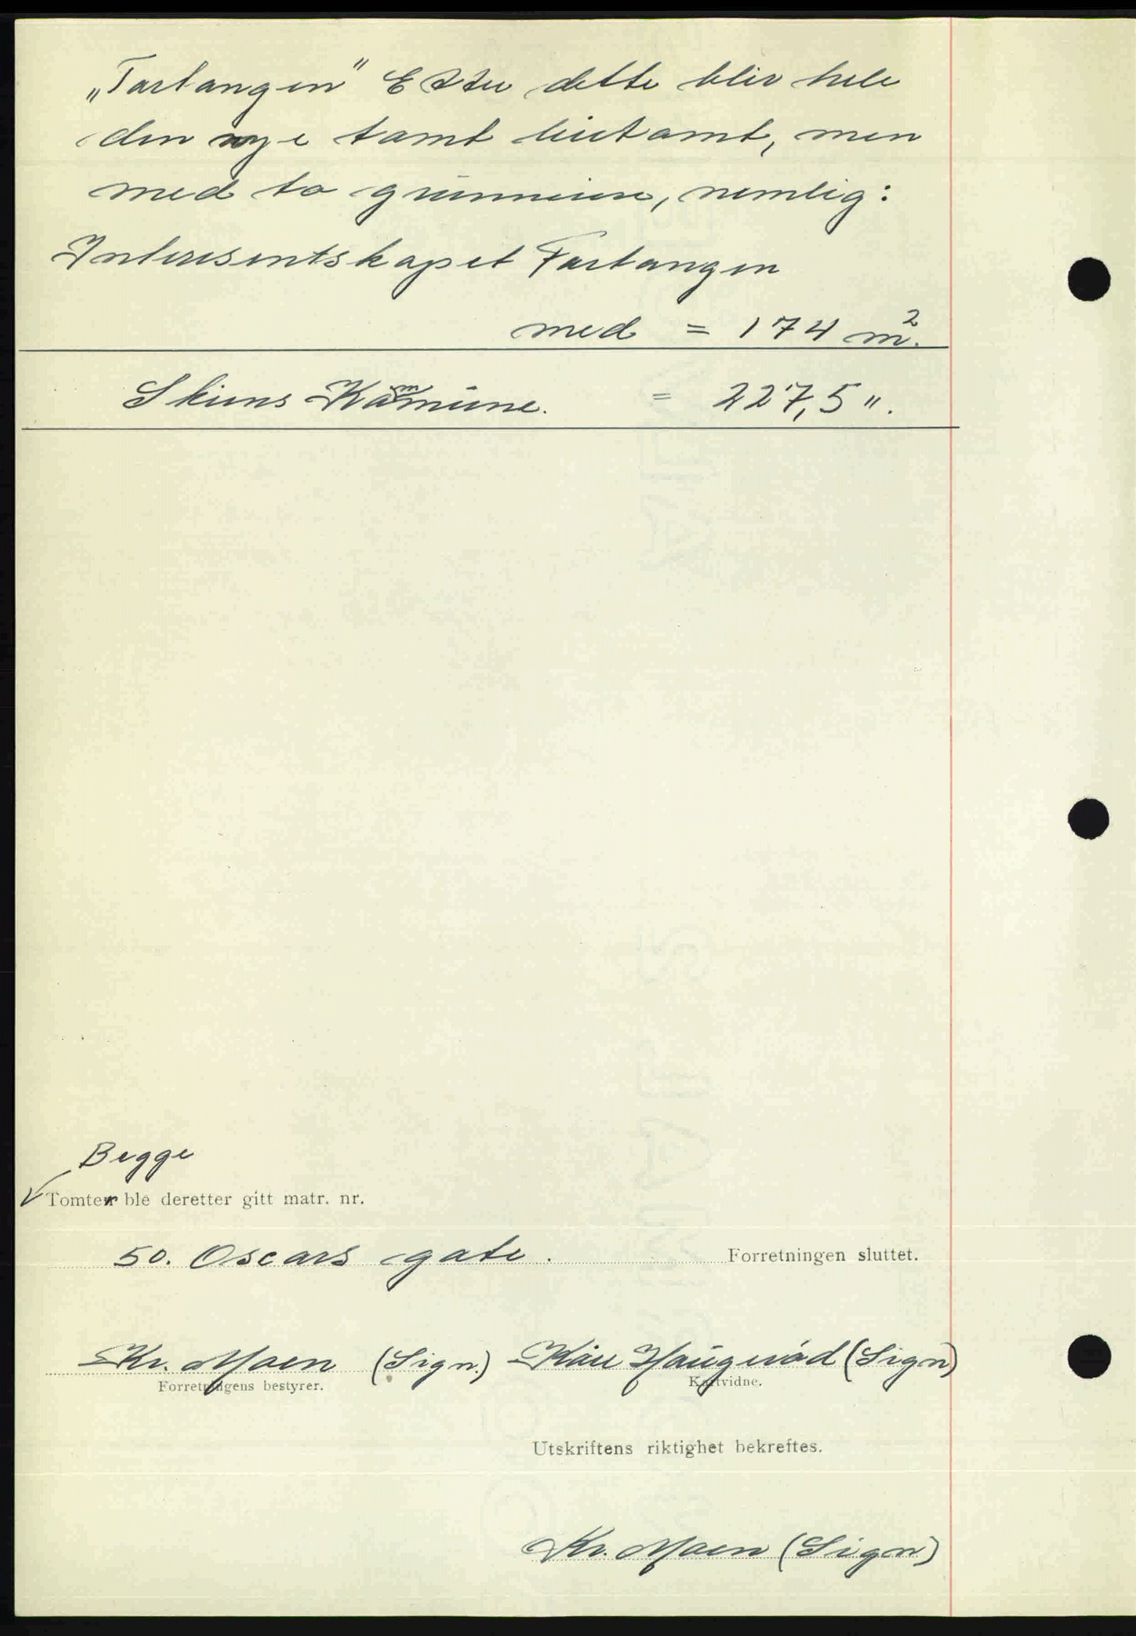 „Fartangen" Etter dette blir hele
den nye tomt leietomt, men
med to grunneiere, nemlig:
Interesentskapet Fartangen
med = 174 m².
Skiens Kommune. = 227,5 ".
Begge
Tomter ble deretter gitt matr. nr.
50. Oscars gate. Forretningen sluttet.
Kr. Moen (Sign.) Kåre Haugerød (Sign)
Forretningens bestyrer. Kartvidne.
Utskriftens riktighet bekreftes.
Kr. Moen (Sign)